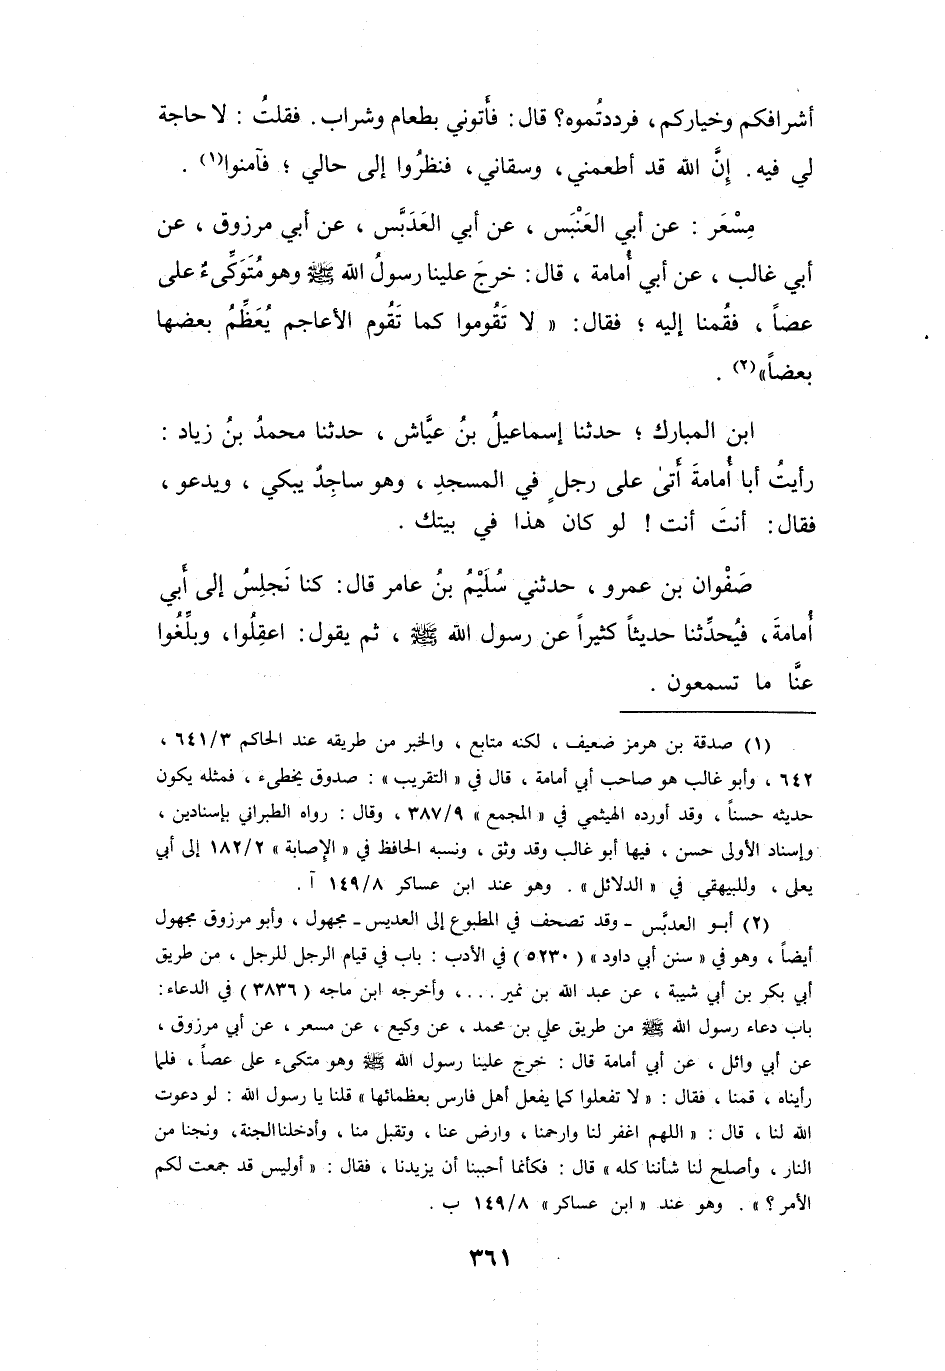 أشرافكم وخياركم ، فرددتُموه؟ قال : فأَتوني بطعام وشراب . فقلتُ : لا حاجة
لي فيه . إِنَّ الله قد أطعمني، وسقاني، فنظرُوا إلى حالي ؛ فآمنوا(١) .
مِسْعَر : عن أبي العَنْبَس ، عن أبي العَدَبَّس ، عن أبي مرزوق ، عن
أبي غالب ، عن أبي أُمامة ، قال : خرجَ علينا رسولُ الله ﷺ وهو مُتَوَكِّىءٌ على
عصاً ، فقُمنا إليه ؛ فقال : « لا تَقُوموا كما تَقُوم الأعاجم يُعَظِّمُ بعضها
بعضاً»(٢) .
ابن المبارك ؛ حدثنا إسماعيلُ بنُ عيَّاش ، حدثنا محمدُ بنُ زياد :
رأيتُ أبا أُمامةَ أَتىٰ على رجلٍ في المسجدِ ، وهو ساجِدٌ يبكي ، ويدعو ،
فقال : أنتَ أنت ! لو كان هذا في بيتك .
صَفْوان بن عمرو ، حدثني سُلَيْمُ بنُ عامر قال : كنا نَجلِسُ إلى أَبي
أُمامةَ، فيُحدِّثنا حديثاً كثيراً عن رسول الله ﷺ ، ثم يقول : اعقِلُوا، وبلِّغُوا
عنَّا ما تسمعون .
(١) صدقة بن هرمز ضعيف ، لكنه متابع ، والخبر من طريقه عند الحاكم ٦٤١/٣ ،
٦٤٢ ، وأبو غالب هو صاحب أبي أمامة ، قال في « التقريب » : صدوق يخطىء ، فمثله يكون
حديثه حسناً ، وقد أورده الهيثمي في « المجمع » ٣٨٧/٩ ، وقال : رواه الطبراني بإسنادين ،
وإسناد الأولى حسن ، فيها أبو غالب وقد وثق ، ونسبه الحافظ في « الإصابة » ١٨٢/٢ إلى أبي
يعلى ، وللبيهقي في « الدلائل » . وهو عند ابن عساكر ١٤٩/٨ آ .
(٢) أبو العدبَّس - وقد تصحف في المطبوع إلى العديس - مجهول ، وأبو مرزوق مجهول
أيضاً ، وهو في « سنن أبي داود » ( ٥٢٣٠ ) في الأدب : باب في قيام الرجل للرجل ، من طريق
أبي بكر بن أبي شيبة ، عن عبد الله بن نمير . . . ، وأخرجه ابن ماجه ( ٣٨٣٦ ) في الدعاء :
باب دعاء رسول الله ﷺ من طريق علي بن محمد ، عن وكيع ، عن مسعر ، عن أبي مرزوق ،
عن أبي وائل ، عن أبي أمامة قال : خرج علينا رسول الله ﷺ وهو متكىء على عصاً ، فلما
رأيناه ، قمنا ، فقال : « لا تفعلوا كما يفعل أهل فارس بعظمائها » قلنا يا رسول الله : لو دعوت
الله لنا ، قال : « اللهم اغفر لنا وارحمنا ، وارض عنا ، وتقبل منا ، وأدخلنا الجنة، ونجنا من
النار ، وأصلح لنا شأننا كله » قال : فكأنما أحببنا أن يزيدنا ، فقال : « أوليس قد جمعت لكم
الأمر ؟ » . وهو عند « ابن عساكر » ١٤٩/٨ ب .
٣٦١